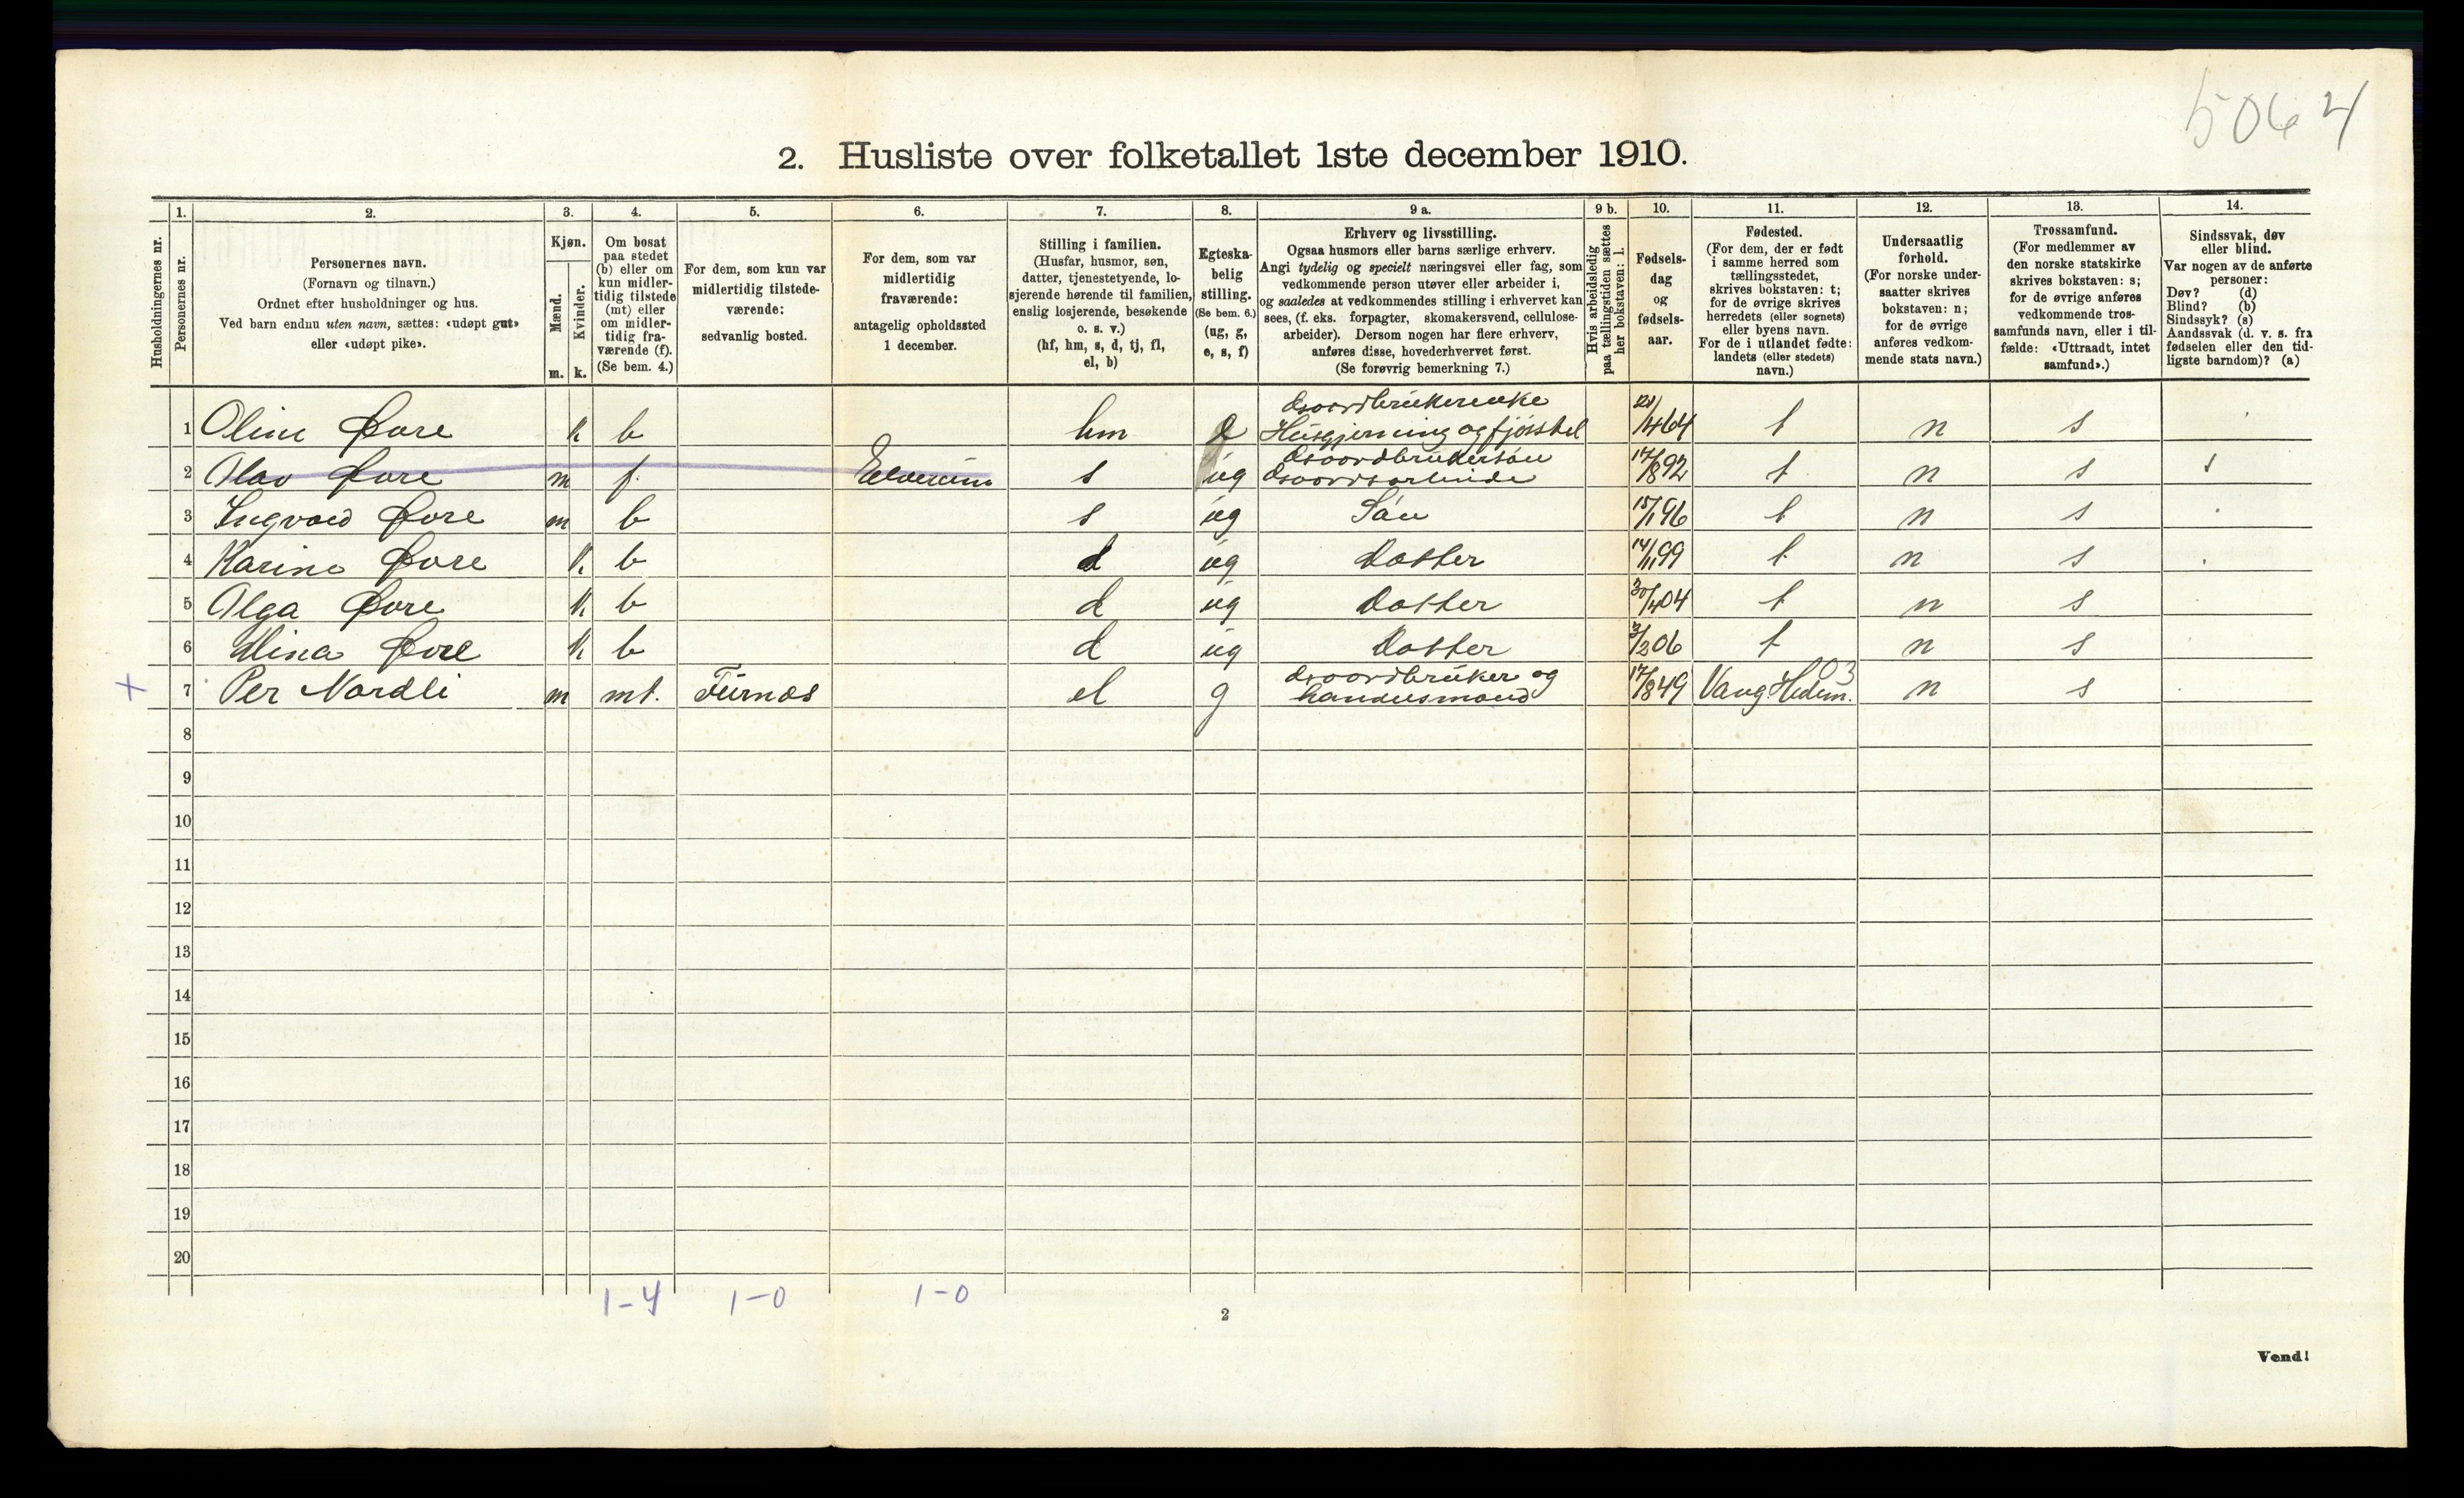 5064
2. Husliste over folketallet 1ste december 1910.
Husholdningernes nr.
1.
Personernes nr.
2.
Personernes navn.
(Fornavn og tilnavn.)
Ordnet efter husholdninger og hus.
Ved barn endnu uten navn, sættes: «udøpt gut»
eller «udøpt pike».
3.
Kjøn.
Mænd.
m.
Kvinder.
k.
4.
Om bosat
paa stedet
(b) eller om
kun midler-
tidig tilstede
(mt) eller
om midler-
tidig fra-
værende (f).
(Se bem. 4.)
5.
For dem, som kun var
midlertidig tilstede-
værende:
sedvanlig bosted.
6.
For dem, som var
midlertidig
fraværende:
antagelig opholdssted
1 december.
7.
Stilling i familien.
(Husfar, husmor, søn,
datter, tjenestetyende, lo-
sjerende hørende til familien,
enslig losjerende, besøkende
o. s. v.)
(hf, hm, s, d, tj, fl,
el, b)
8.
Egteska-
belig
stilling.
(Se bem. 6.)
(ug, g,
e, s, f)
9 a.
Erhverv og livsstilling.
Ogsaa husmors eller barns særlige erhverv.
Angi tydelig og specielt næringsvei eller fag, som
vedkommende person utøver eller arbeider i,
og saaledes at vedkommendes stilling i erhvervet kan
sees, (f. eks. forpagter, skomakersvend, cellulose-
arbeider). Dersom nogen har flere erhverv,
anføres disse, hovederhvervet først.
(Se forøvrig bemerkning 7.)
9 b.
Hvis arbeidsledig
paa tællingstiden sættes
her bokstaven: l.
10.
Fødsels-
dag
og
fødsels-
aar.
11.
Fødested.
(For dem, der er født
i samme herred som
tællingsstedet,
skrives bokstaven: t;
for de øvrige skrives
herredets (eller sognets)
eller byens navn.
For de i utlandet fødte:
landets (eller stedets)
navn.)
12.
Undersaatlig
forhold.
(For norske under-
saatter skrives
bokstaven: n;
for de øvrige
anføres vedkom-
mende stats navn.)
13.
Trossamfund.
(For medlemmer av
den norske statskirke
skrives bokstaven: s;
for de øvrige anføres
vedkommende tros-
samfunds navn, eller i til-
fælde: «Uttraadt, intet
samfund».)
14.
Sindssvak, døv
eller blind.
Var nogen av de anførte
personer:
Døv? (d)
Blind? (b)
Sindssyk? (s)
Aandssvak (d. v. s. fra
fødselen eller den tid-
ligste barndom)? (a)
1 Oline Øvre k b hm Husgjerning og fjösstel /4 64 t n s
2 Olav Øvre m f Elverum s ug 17/8 92 t n s
3 Ingvald Øvre m b s ug Sön 15/1 96 t n s
4 Karine Øvre k b d ug Datter 14/11 99 t n s
5 Olga Øvre k b d ug Datter 30/4 04 t n s
6 Øvre k b d ug Datter 3/2 06 t n s
03
7 Per Nordli m mt. Furnes el g gaardbruker og handelsmand 17/8 49 Vang Hedm. n s
8
9
10
11
12
13
14
15
16
17
18
19
20
1-4 1-0 1-0
2
Vend!